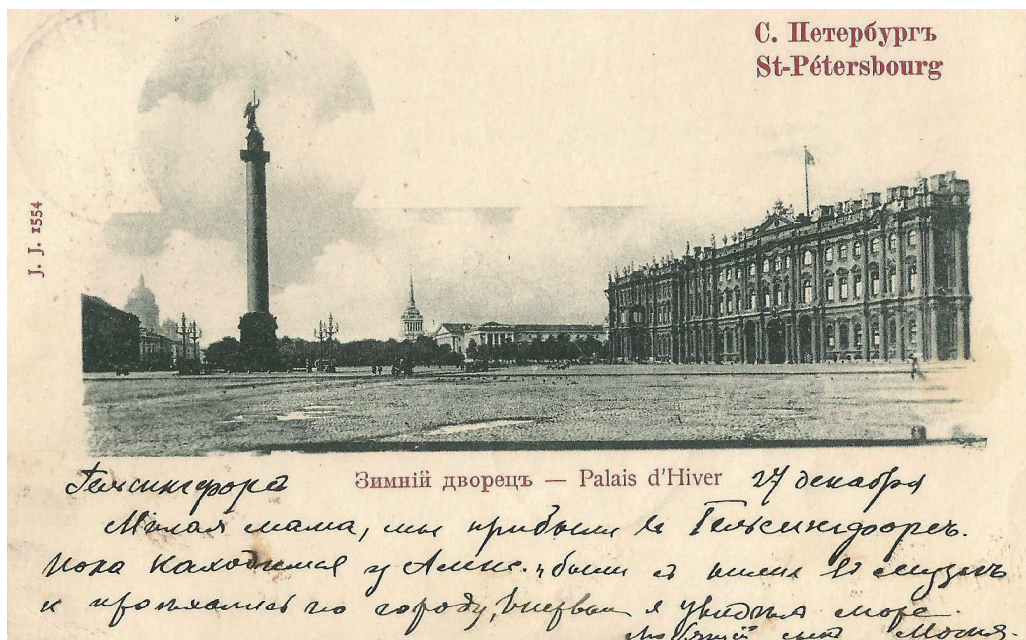 С. Петербургъ
St-Pétersbourg
J. J. 1554
Зимній дворецъ — Palais d'Hiver
Гельсингфорсъ 27 декабря
Милая мама, мы прибыли въ Гельсингфорсъ.
Пока находимся у были съ ними въ музеѣ
и проѣхались по городу, впервые я увидѣлъ море.
Любящій сынъ